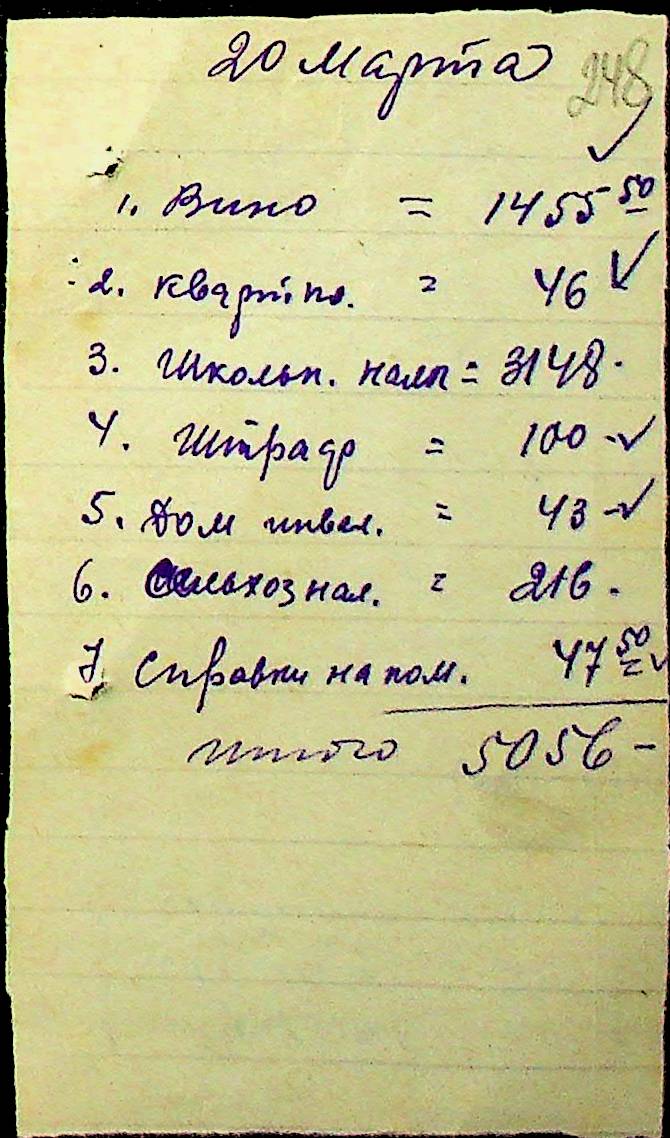 20 Марта
248
1. Вино = 1455 50
2. квартпл. = 46
3. Школьн. нал = 3148.
4. Штраф = 100 -
5. Дом инвал. = 43 -
6. Сельхознал. = 216.
7 Справки на пом. 47 50
итого 5056 -